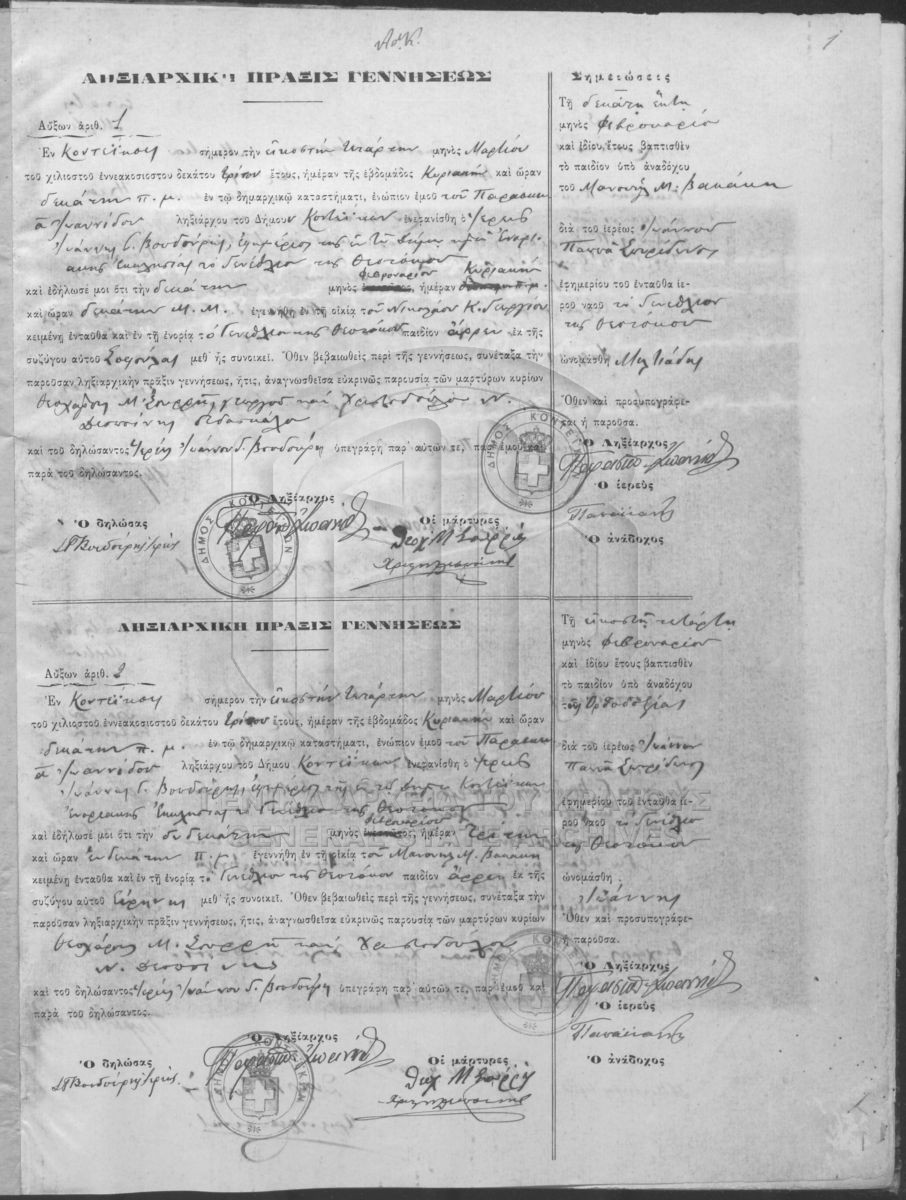 1
ΛΗΞΙΑΡΧΙΚΗ ΠΡΑΞΙΣ ΓΕΝΝΗΣΕΩΣ
Αὔξων ἀριθ. 1
Ἐν Κοντέϊκοις σήμερον τὴν εἰκοστὴν τετάρτην μηνὸς Μαρτίου
τοῦ χιλιοστοῦ ἐννεακοσιοστοῦ δεκάτου τρίτου ἔτους, ἡμέραν τῆς ἑβδομάδος Κυριακὴν καὶ ὥραν
δεκάτην π. μ. ἐν τῷ δημαρχικῷ καταστήματι, ἐνώπιον ἐμοῦ τοῦ
Ἰωαννίδου ληξιάρχου τοῦ Δήμου Κοντεΐκων ἐνεφανίσθη ὁ ἱερεὺς
Ἰωάννης Γ. Βουδούρης, ἐφημέριος τῆς ἐν τῷ δήμῳ
Ἐκκλησίας τὸ Γενέθλιον τῆς Θεοτόκου
καὶ ἐδήλωσέ μοι ὅτι τὴν δεκάτην μηνὸς Φεβρουαρίου ἡμέραν Κυριακὴν
καὶ ὥραν δεκάτην Μ. Μ. ἐγεννήθη ἐν τῇ οἰκίᾳ τοῦ Νικολάου Κ. Γεωργίου
κειμένῃ ἐνταῦθα καὶ ἐν τῇ ἐνορίᾳ τὸ Γενέθλιον τῆς Θεοτόκου παιδίον ἄρρεν ἐκ τῆς
συζύγου αὐτοῦ Σοφούλας μεθ᾽ ἧς συνοικεῖ. Ὅθεν βεβαιωθεὶς περὶ τῆς γεννήσεως, συνέταξα τὴν
παροῦσαν ληξιαρχικὴν πρᾶξιν γεννήσεως, ἥτις, ἀναγνωσθεῖσα εὐκρινῶς παρουσίᾳ τῶν μαρτύρων κυρίων
Θεοχάρη Μ. Σουρρῆ γεωργοῦ καὶ Χριστοδούλου Ν.
Δεσποίνης διδασκάλου
καὶ τοῦ δηλώσαντος Ἱερέως Ἰωάννου Γ. Βουδούρη ὑπεγράφη παρ᾽ αὐτῶν τε, παρ᾽ ἐμοῦ καὶ
παρὰ τοῦ δηλώσαντος.
Ὁ Ληξίαρχος
Ὁ δηλώσας
Οἱ μάρτυρες
Θεοχ Μ Σουρρῆς
ΔΗΜΟΣ ΚΟΝΤΕΪΚΩΝ
Σημειώσεις
Τῇ δεκάτῃ ἕκτῃ
μηνὸς Φεβρουαρίου
καὶ ἰδίου ἔτους βαπτισθὲν
τὸ παιδίον ὑπὸ ἀναδόχου
τοῦ Μανουὴλ Μ. Βακάκη
διὰ τοῦ ἱερέως Ἰωάννου
Παππᾶ Σπυρίδωνος
ἐφημερίου τοῦ ἐνταῦθα ἱε-
ροῦ ναοῦ τὸ Γενέθλιον
τῆς Θεοτόκου
ὠνομάσθη Μιλτιάδης
Ὅθεν καὶ προσυπογράφε-
ται ἡ παροῦσα.
Ὁ Ληξίαρχος
Ὁ ἱερεὺς
Ὁ ἀνάδοχος
ΔΗΜΟΣ ΚΟΝΤΕΪΚΩΝ
ΛΗΞΙΑΡΧΙΚΗ ΠΡΑΞΙΣ ΓΕΝΝΗΣΕΩΣ
Αὔξων ἀριθ. 2
Ἐν Κοντέϊκοις σήμερον τὴν εἰκοστὴν τετάρτην μηνὸς Μαρτίου
τοῦ χιλιοστοῦ ἐννεακοσιοστοῦ δεκάτου τρίτου ἔτους, ἡμέραν τῆς ἑβδομάδος Κυριακὴν καὶ ὥραν
δεκάτην π. μ. ἐν τῷ δημαρχικῷ καταστήματι, ἐνώπιον ἐμοῦ τοῦ
Ἰωαννίδου ληξιάρχου τοῦ Δήμου Κοντεΐκων ἐνεφανίσθη ὁ ἱερεὺς
Ἰωάννης Γ. Βουδούρης, ἐφημέριος τῆς ἐν τῷ δήμῳ Κοντεΐκων
Ἐνοριακῆς Ἐκκλησίας τὸ Γενέθλιον τῆς Θεοτόκου
καὶ ἐδήλωσέ μοι ὅτι τὴν δωδεκάτην μηνὸς Φεβρουαρίου ἡμέραν Τρίτην
καὶ ὥραν ἑνδεκάτην π. μ. ἐγεννήθη ἐν τῇ οἰκίᾳ τοῦ Μανουὴλ Μ. Βακάκη
κειμένῃ ἐνταῦθα καὶ ἐν τῇ ἐνορίᾳ τὸ Γενέθλιον τῆς Θεοτόκου παιδίον ἄρρεν ἐκ τῆς
συζύγου αὐτοῦ Εἰρήνης μεθ᾽ ἧς συνοικεῖ. Ὅθεν βεβαιωθεὶς περὶ τῆς γεννήσεως, συνέταξα τὴν
παροῦσαν ληξιαρχικὴν πρᾶξιν γεννήσεως, ἥτις, ἀναγνωσθεῖσα εὐκρινῶς παρουσίᾳ τῶν μαρτύρων κυρίων
Θεοχάρη Μ. Σουρρῆ καὶ Χριστοδούλου
Ν. Δεσποίνης
καὶ τοῦ δηλώσαντος Ἱερέως Ἰωάννου Γ. Βουδούρη ὑπεγράφη παρ᾽ αὐτῶν τε, παρ᾽ ἐμοῦ καὶ
παρὰ τοῦ δηλώσαντος.
Ὁ Ληξίαρχος
Ὁ δηλώσας
Οἱ μάρτυρες
Θεοχ Μ Σουρρῆς
ΔΗΜΟΣ ΚΟΝΤΕΪΚΩΝ
Τῇ εἰκοστῇ τετάρτῃ
μηνὸς Φεβρουαρίου
καὶ ἰδίου ἔτους βαπτισθὲν
τὸ παιδίον ὑπὸ ἀναδόχου
τῆς Ὀρθοδοξίας
διὰ τοῦ ἱερέως Ἰωάννου
Παππᾶ Σπυρίδωνος
ἐφημερίου τοῦ ἐνταῦθα ἱε-
ροῦ ναοῦ τὸ Γενέθλιον
τῆς Θεοτόκου
ὠνομάσθη
Ἰωάννης
Ὅθεν καὶ προσυπογράφε-
ται ἡ παροῦσα.
Ὁ Ληξίαρχος
Ὁ ἱερεὺς
Ὁ ἀνάδοχος
ΔΗΜΟΣ ΚΟΝΤΕΪΚΩΝ
GENERAL STATE ARCHIVES